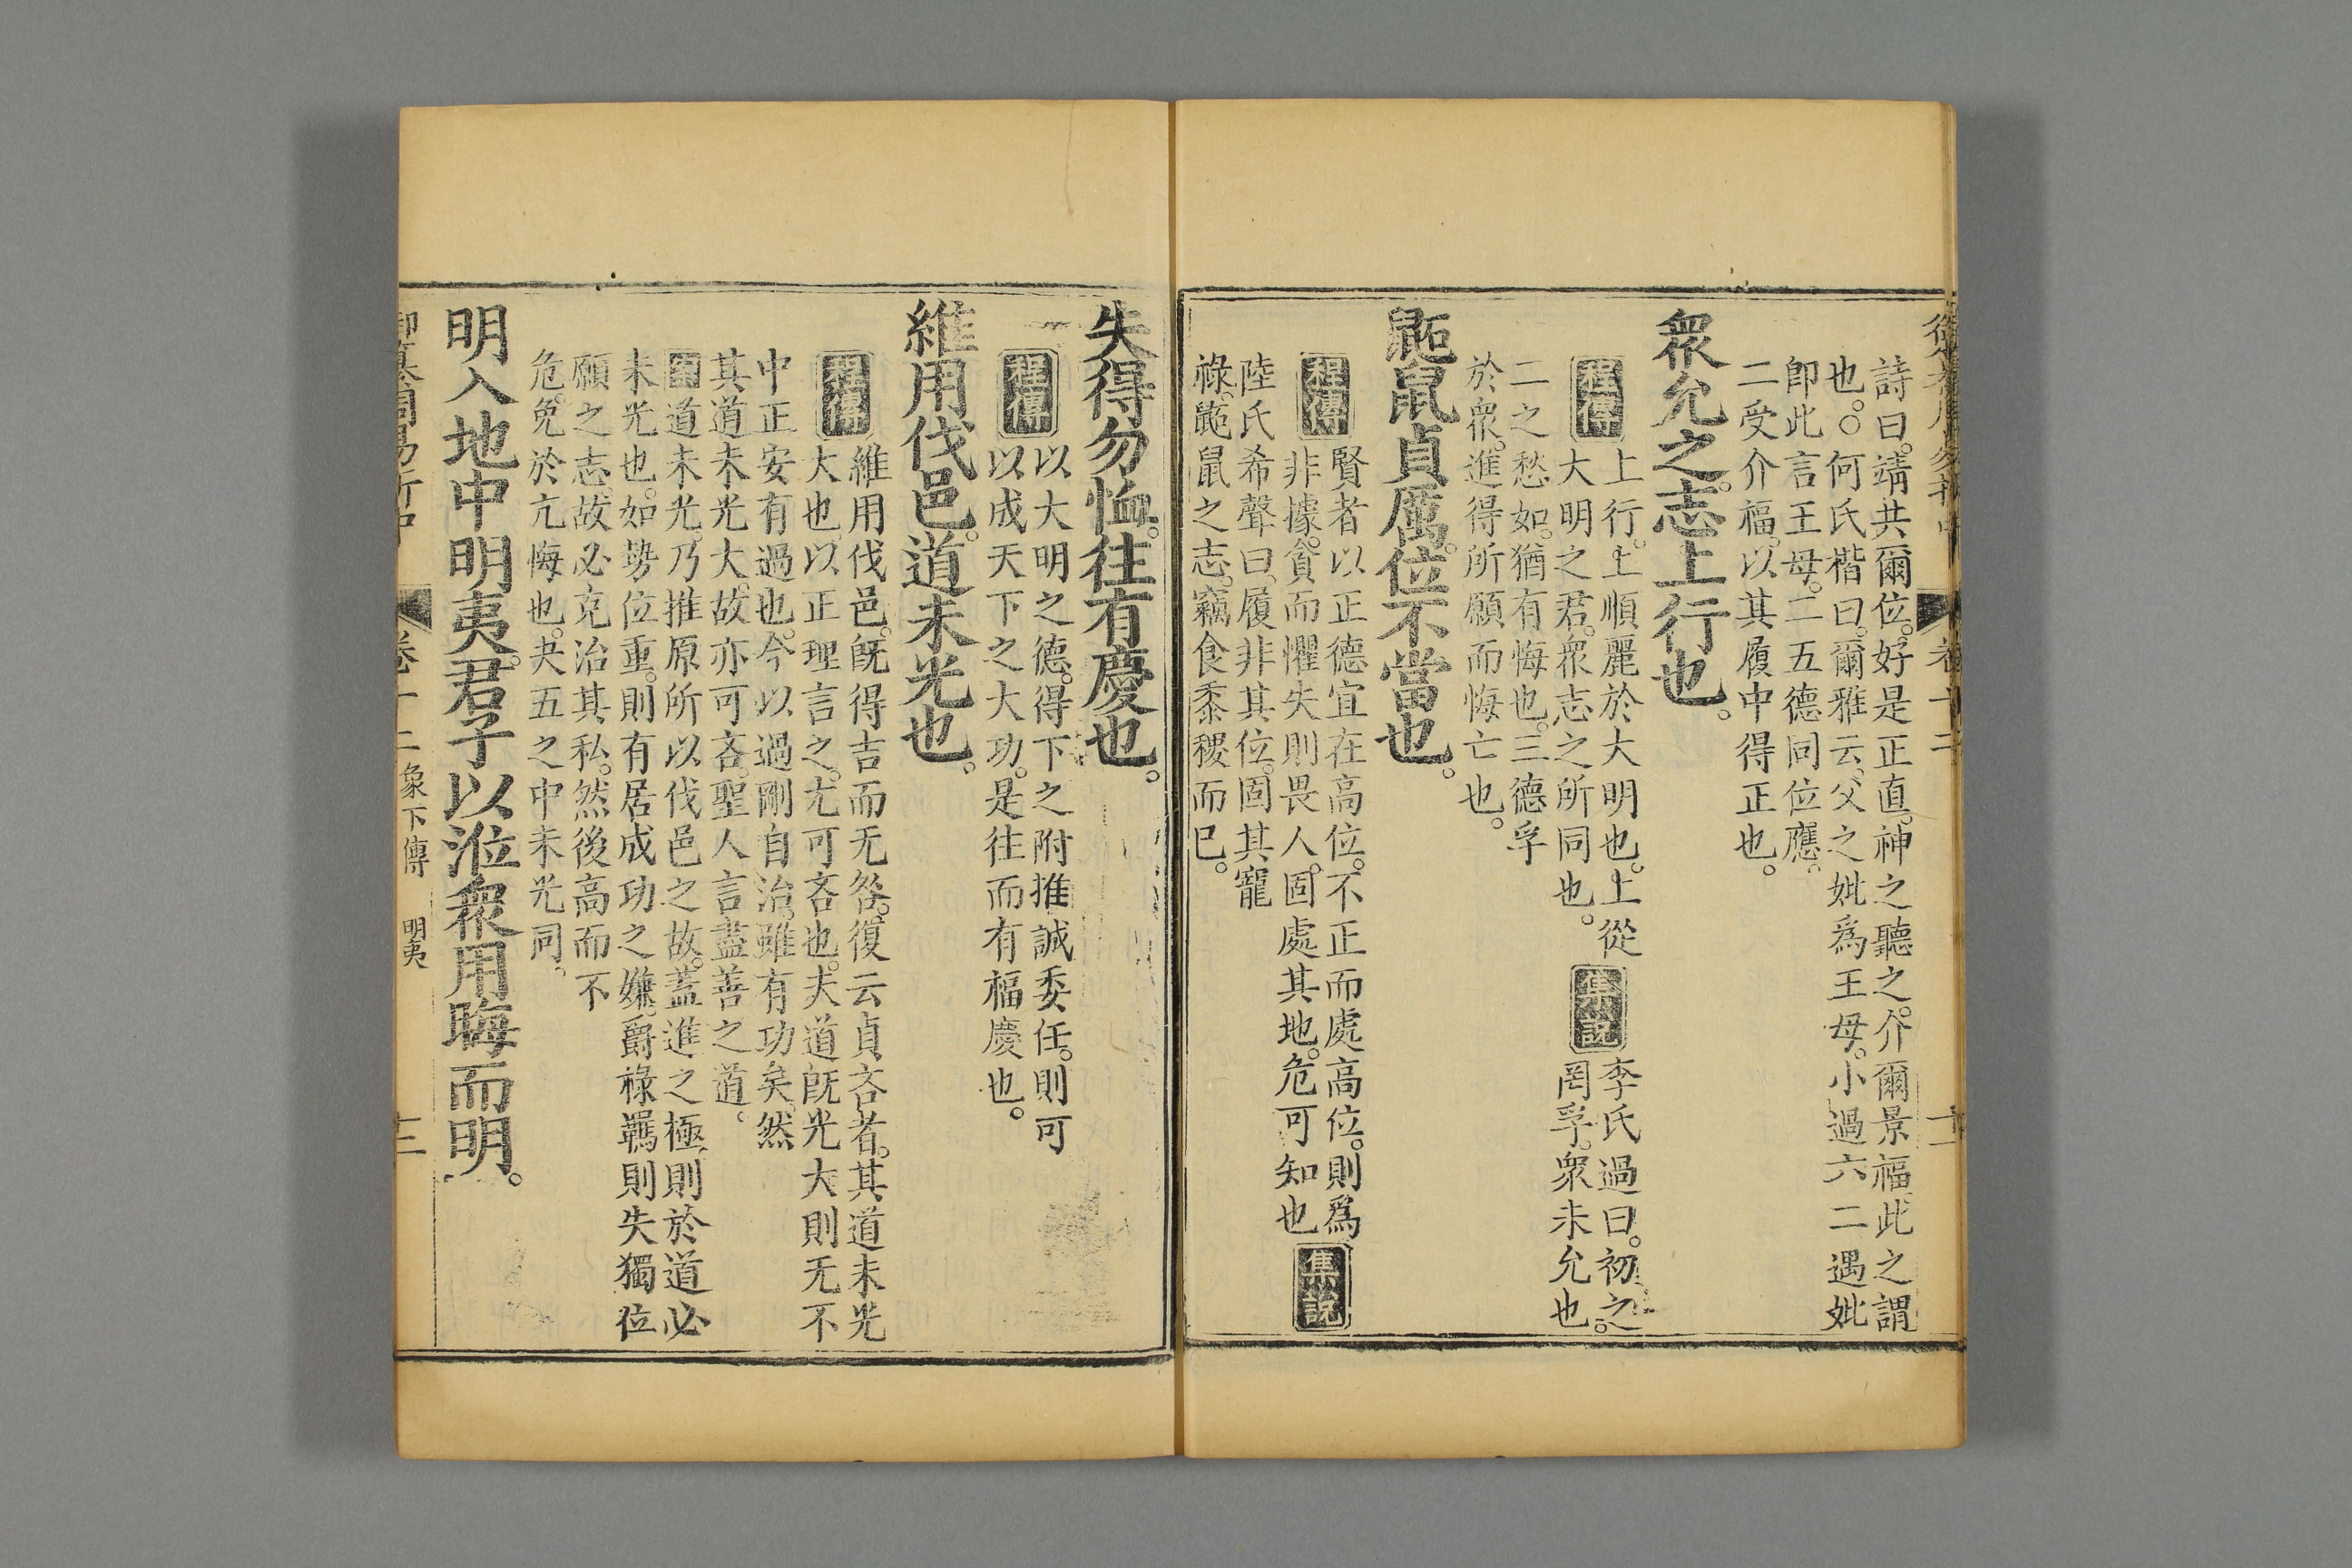 卷十二 十一
詩曰。靖共爾位。好是正直。神之聽之。介爾景福。此之謂
也。○何氏楷曰。爾雅云。父之妣爲王母。小過六二遇妣
卽此言王母。二五德同位應。
二受介福。以其履中得正也。
衆允之。志上行也。
程傳
上行。上順麗於大明也。上從
大明之君。衆志之所同也。
集說
李氏過曰。初之
罔孚。衆未允也。
二之愁如。猶有悔也。三德孚
於衆。進得所願而悔亡也。
鼫鼠貞厲。位不當也。
程傳
賢者以正德宜在高位。不正而處高位。則爲
非據。貪而懼失則畏人。固處其地。危可知也
集說
陸氏希聲曰。履非其位。固其寵
祿。鼫鼠之志。竊食黍稷而已。
失得勿恤。往有慶也。
程傳
以大明之德。得下之附。推誠委任。則可
以成天下之大功。是往而有福慶也。
維用伐邑。道未光也。
程傳
維用伐邑。旣得吉而无咎。復云貞吝者。其道未光
大也。以正理言之。尤可吝也。夫道旣光大。則无不
中正。安有過也。今以過剛自治。雖有功矣。然
其道未光大。故亦可吝。聖人言盡善之道。
案道未光。乃推原所以伐邑之故。蓋進之極。則於道必
未光也。如勢位重。則有居成功之嫌。爵祿羈則失獨位
願之志。故必克治其私。然後高而不
危。免於亢悔也。夬五之中未光同。
明入地中明夷。君子以涖衆用晦而明。
御纂周易折中 卷十二象下傳 明夷 十二